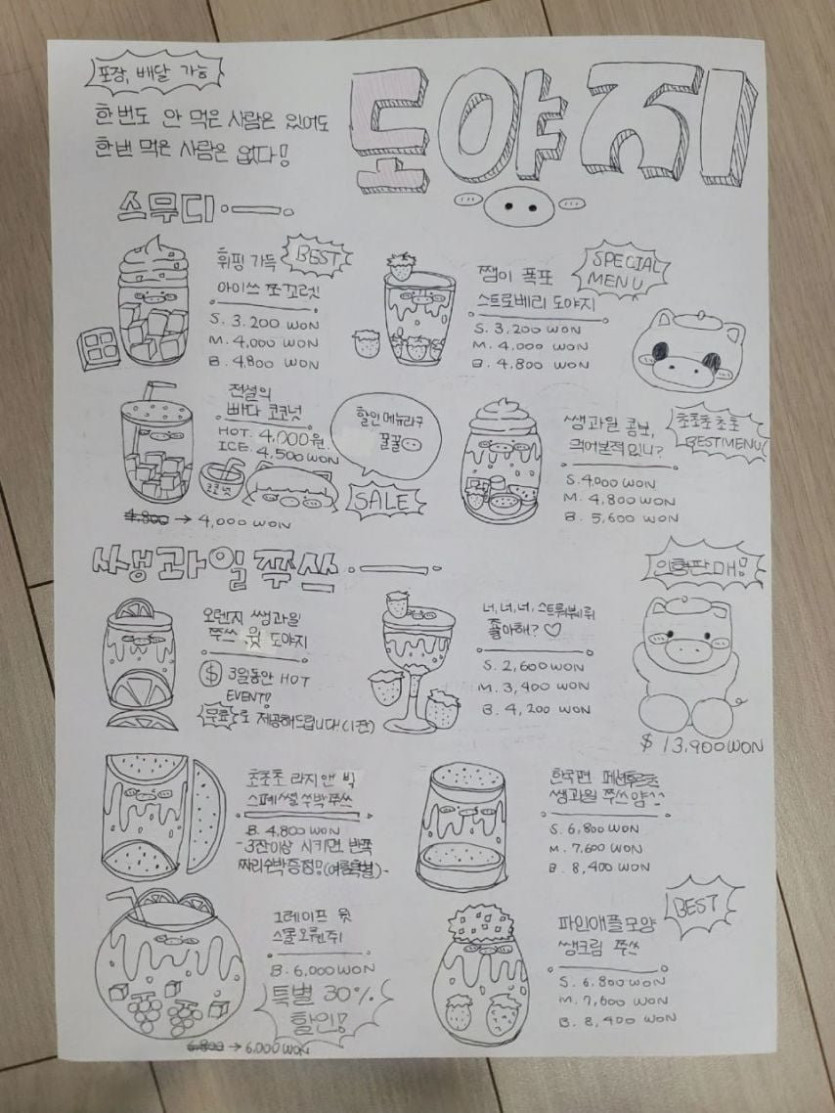 포장, 배달 가능
한번도 안 먹은 사람은 있어도
한번 먹은 사람은 없다!
도야지
스무디
휘핑 가득
BEST
아이쓰 쪼꼬렛
S. 3.200 WON
M. 4,000 WON
B. 4.800 WON
쨈이 폭포
SPECIAL
MENU
스트로베리 도야지
S. 3,200 WON
M. 4,000 WON
B. 4.800 WON
전설의
빠다 코코넛
HOT. 4.000원
ICE. 4,500WON
코코넛
4.800 → 4,000 WON
할인 메뉴라구
꿀꿀
SALE
쌩과일 콤보,
먹어본적있니?
초초초초초
BESTMENU!
S.4000 WON
M. 4,800WON
B. 5,600 WON
쌩과일 쭈쓰
오렌지 쌩과일
쭈쓰 윗 도야지
$ 3일동안 HOT
EVENT!
무료로 제공해드립니다(1잔)
너, 너, 너, 스트뤄붸리쥐
좋아해? ♡
S. 2,600WON
M. 3,400 WON
B. 4,200 WON
인형판매!
$ 13,900WON
초초초 라지 앤 빅
스페쎨 쑤박쭈쓰
B. 4,800 WON
-3잔이상 시키면, 반쪽
짜리수박증정!! (여름특별)-
한국편
쌩과일 쭈쓰얌^^
S. 6,800 WON
M. 7,600 WON
B. 8,400 WON
그레이프 윗
B. 6,000WON
특별 30%
할인!
6.800 → 6.000WON
파인애플모양
쌩크림 쭈쓰
BEST
S. 6.800 WON
M. 7,600 WON
B. 8,400 WON